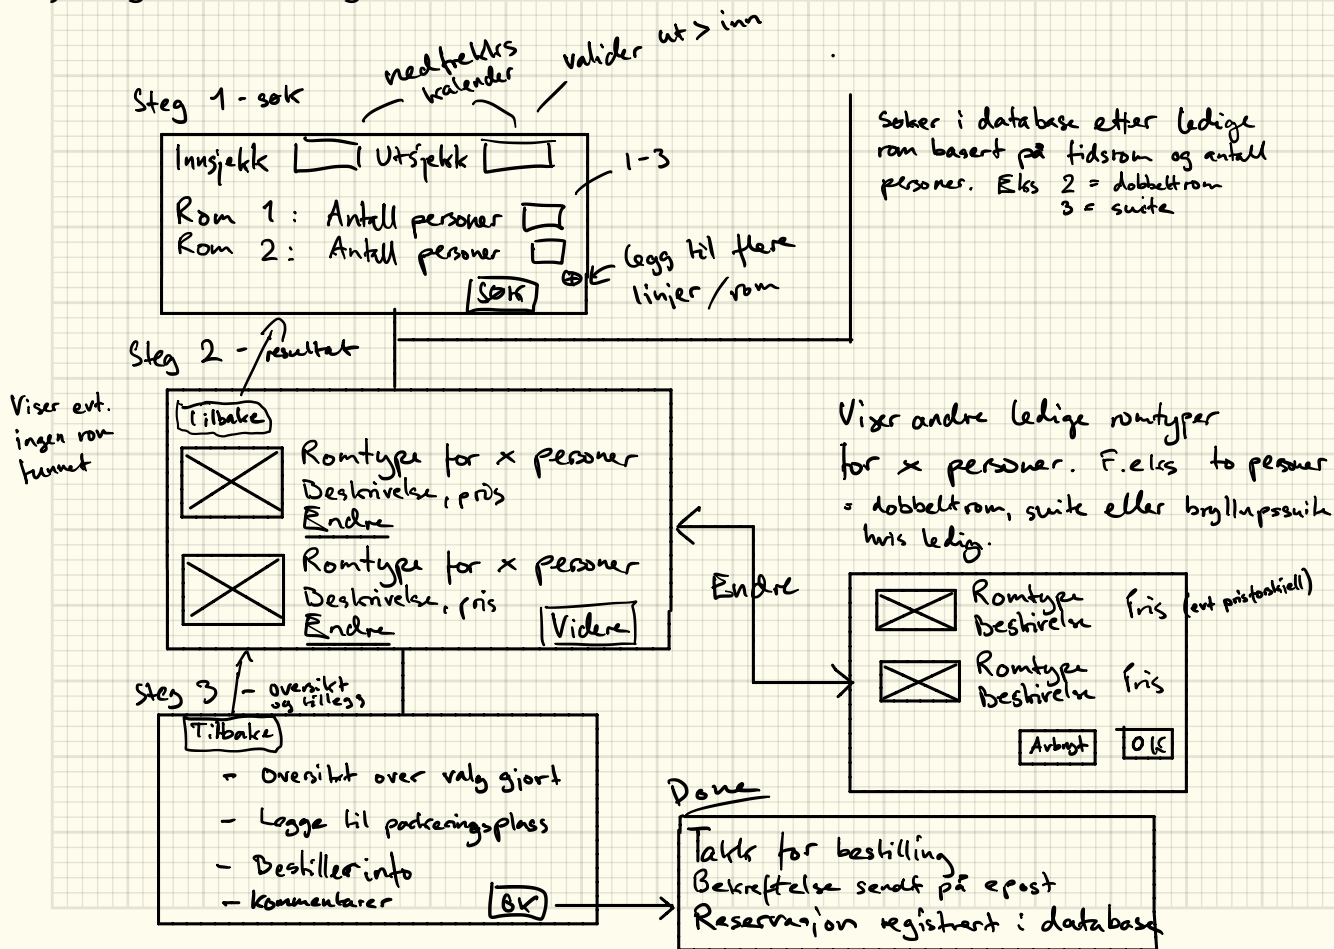 nedtrekks
kalender
valider ut > inn
Steg 1 - søk
Innsjekk Utsjekk
1-3
Rom 1: Antall personer
Rom 2: Antall personer
SØK
⊕
legg til flere
linjer / rom
søker i database etter ledige
rom basert på tidsrom og antall
personer. Eks 2 = dobbeltrom
3 = suite
Steg 2 - resultat
Viser evt.
ingen rom
funnet
Tilbake
Romtype for x personer
Beskrivelse, pris
Endre
Romtype for x personer
Beskrivelse, pris
Endre
Videre
Endre
Viser andre ledige romtyper
for x personer. F.eks to personer
= dobbeltrom, suite eller bryllupssuite
hvis ledig.
Romtype Pris (evt prisforskjell)
Beskrivelse
Romtype Pris
Beskrivelse
Avbryt OK
Steg 3 - oversikt
og tillegg
Tilbake
- Oversikt over valg gjort
- Legge til parkeringsplass
- Bestillerinfo
- kommentarer
OK
Done
Takk for bestilling
Bekreftelse sendt på epost
Reservasjon registrert i database